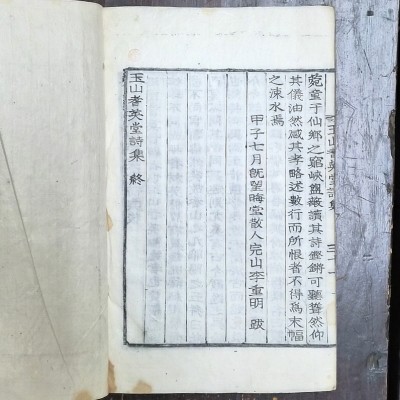 菀童于仙鄉之窮峽盥讀其詩鏗鏘可聽聳然仰
其儀油然感其孝略述數行而所恨者不得爲末幅
之涑水焉
甲子七月旣望晦堂散人完山李重明 跋
玉山孝英堂詩集 終
玉山孝英堂詩集